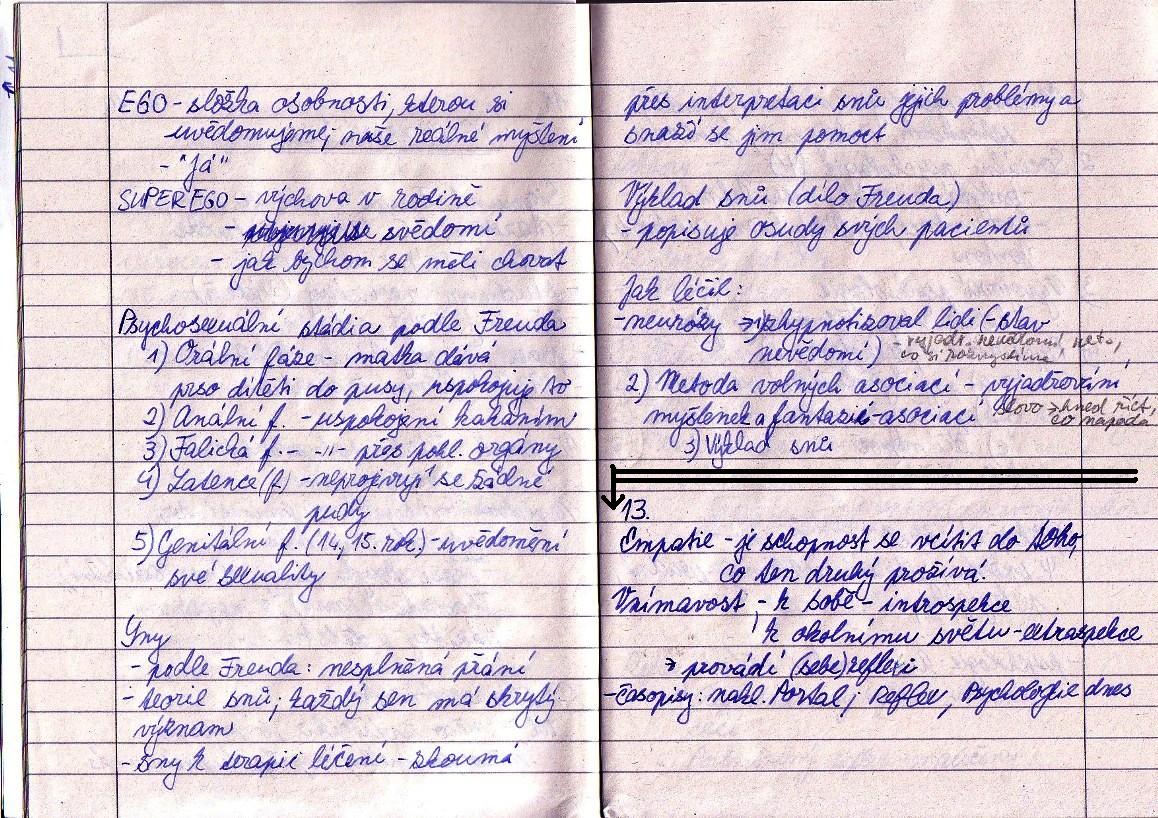 EGO - složka osobnosti, kterou si
uvědomujeme; naše reálné myšlení
- "Já"
SUPEREGO - výchova v rodině
- svědomí
- jak bychom se měli chovat
Psychosexuální stádia podle Freuda
1) Orální fáze - matka dává
prso dítěti do pusy, uspokojuje to
2) Anální f. - uspokojení kakáním
3) Falická f. - -||- přes pohl. orgány
4) Latence (f) - neprojevují se žádné
pudy
5) Genitální f. (14, 15. rok) - uvědomění
své sexuality
Sny
- podle Freuda: nesplněná přání
- teorie snů; každý sen má skrytý
význam
- sny k terapii léčení - zkoumá
přes interpretaci snů jejich problémy a
snaží se jim pomoct
Výklad snů (dílo Freuda)
- popisuje osudy svých pacientů
Jak léčil:
- neurózy → 1) zhypnotizoval lidi (- stav
nevědomí)
co si
2) Metoda volných asociací - vyjadřování
myšlenek a fantazií - asociací slovo → hned říct,
co napadá
3) Výklad snů
13.
Empatie - je schopnost se vcítit do toho,
co ten druhý prožívá.
Vnímavost - k sobě - introspekce
k okolnímu světu - extraspekce
→ provádí (sebe)reflexi
- Časopisy: např. Portál; Reflex, Psychologie dnes